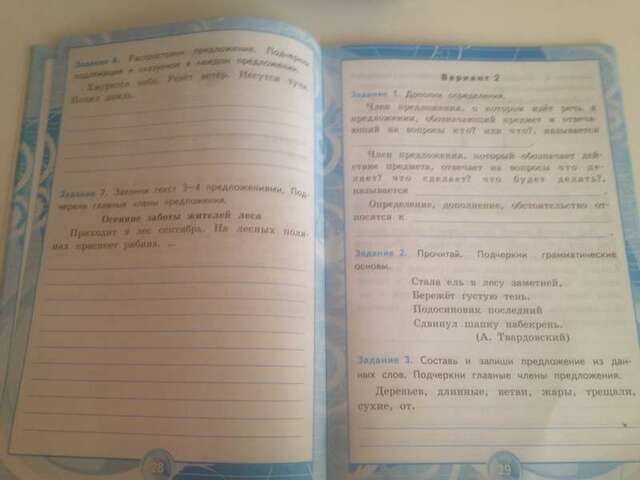 Задание 6. Распространи предложения. Подчеркни
подлежащее и сказуемое в каждом предложении.
Хмурится небо. Реёт ветер. Несутся тучи.
Пошёл дождь.
Задание 7. Закончи текст 3–4 предложениями. Под-
черкни главные члены предложения.
Осенние заботы жителей леса
Приходит в лес сентябрь. На лесных поля-
нах краснеет рябина.
28
Вариант 2
Задание 1. Дополни определения.
Член предложения, о котором идёт речь в
предложении, обозначающий предмет и отвеча-
ющий на вопросы кто? или что?, называется
Член предложения, который обозначает дей-
ствие предмета, отвечает на вопросы что де-
лает? что сделает? что будет делать?,
называется
Определение, дополнение, обстоятельство от-
носятся к
Задание 2. Прочитай. Подчеркни грамматические
основы.
Стала ель в лесу заметней,
Бережёт густую тень.
Подосиновик последний
Сдвинул шапку набекрень.
(А. Твардовский)
Задание 3. Составь и запиши предложение из дан-
ных слов. Подчеркни главные члены предложения.
Деревьев, длинные, ветки, жары, трещали,
сухие, от.
29